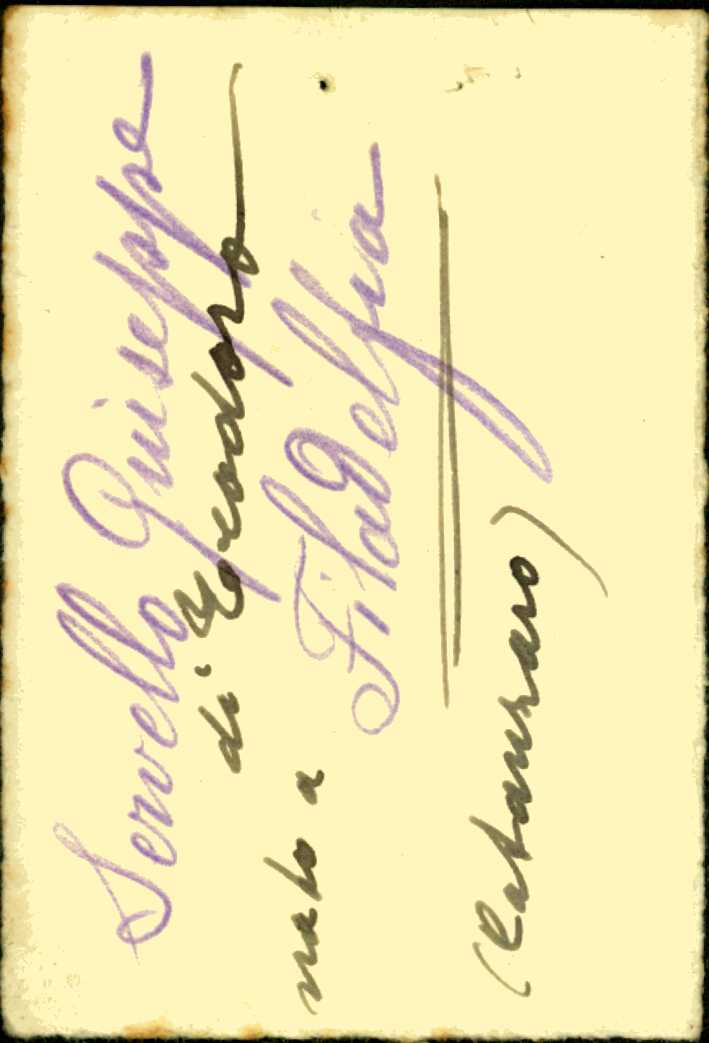 Servello Giuseppe
di Teodoro
nato a Filadelfia
(Catanzaro)